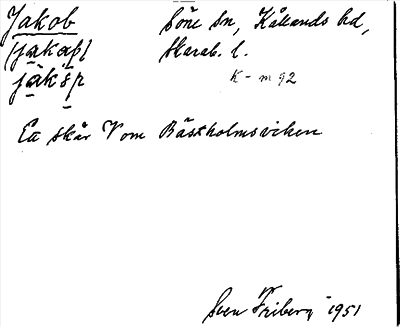 Jakob Söne sn, Kållands hd,
(jakap) Skarab. l.
jakåp K-m 92
Ett skär V om Bästholmsviken
Sven Friberg 1951